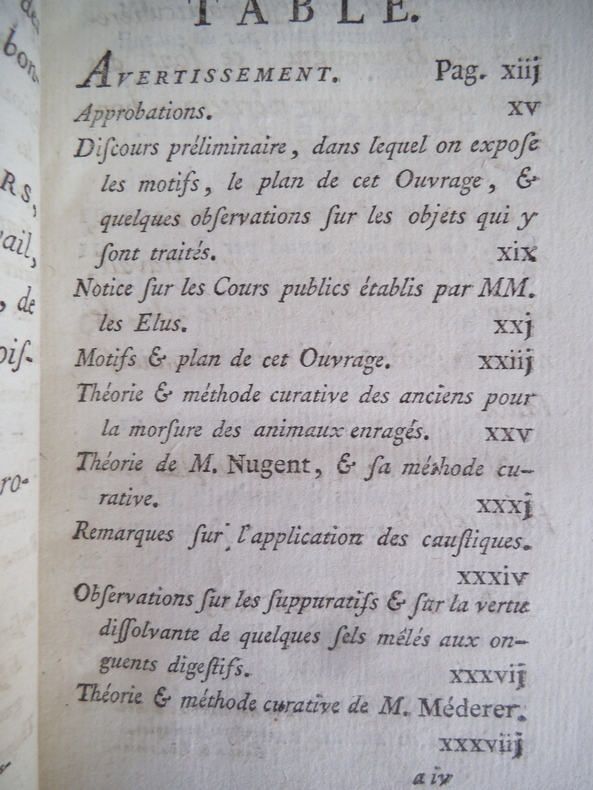 TABLE.
AVERTISSEMENT. Pag. xiij
Approbations. xv
Diſcours préliminaire, dans lequel on expoſe
les motifs, le plan de cet Ouvrage, &
quelques obſervations ſur les objets qui y
ſont traités. xix
Notice ſur les Cours publics établis par MM.
les Elus. xxj
Motifs & plan de cet Ouvrage. xxiij
Théorie & méthode curative des anciens pour
la morſure des animaux enragés. xxv
Théorie de M. Nugent, & ſa méthode cu-
rative. xxxj
Remarques ſur l'application des cauſtiques.
xxxiv
Obſervations ſur les ſuppuratifs & ſur la vertu
diſſolvante de quelques ſels mêlés aux on-
guents digeſtifs. xxxvij
Théorie & méthode curative de M. Méderer.
xxxviij
a iv
de
bon-
RS,
vail,
, de
oiſ-
ro-